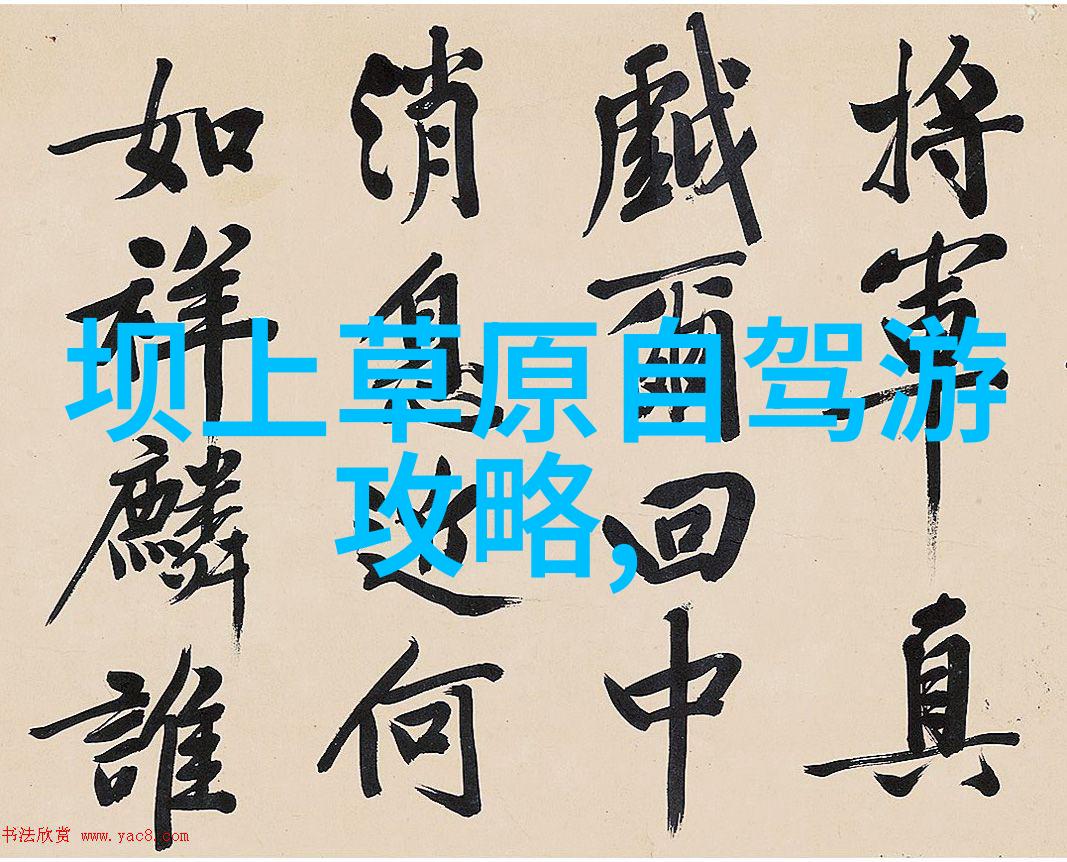 坝上草原自驾游
攻略,
將軍真
戲爾回中
消息近何
如祥麟誰
书法欣赏 www.yac8.com